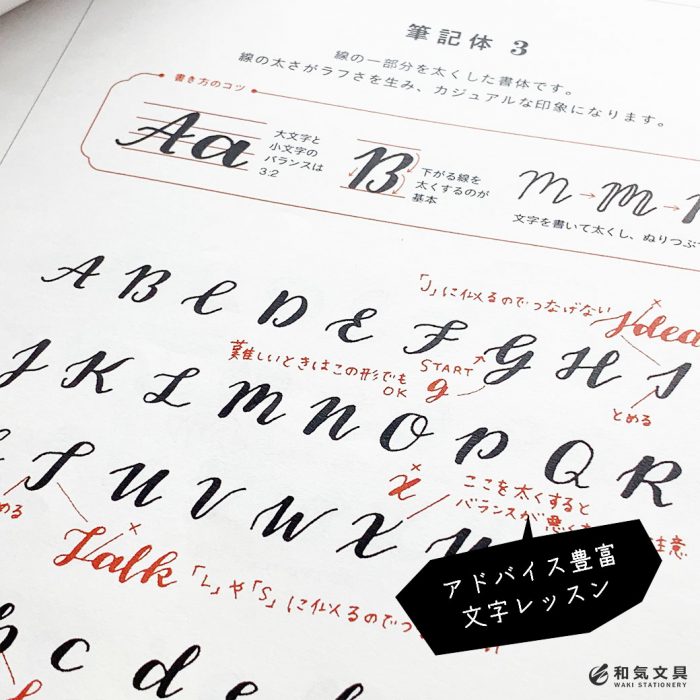 筆記体 3
線の一部分を太くした書体です。
線の太さがラフさを生み、カジュアルな印象になります。
書き方のコツ
Aa
大文字と
小文字の
バランスは
3:2
B
下がる線を
太くするのが
基本
m→m→
文字を書いて太くし、ぬりつぶ
「J」に似るのでつなげない
Idea
A B C D E F G H I
難しいときはこの形でも
OK
START
g
とめる
J K L M N O P Q R
x
ここを太くすると
バランスが悪く
注意
T U V W X
める
Talk
「L」や「S」に似るのでつ
b c d e
アドバイス豊富
文字レッスン
和気文具
WAKI STATIONERY